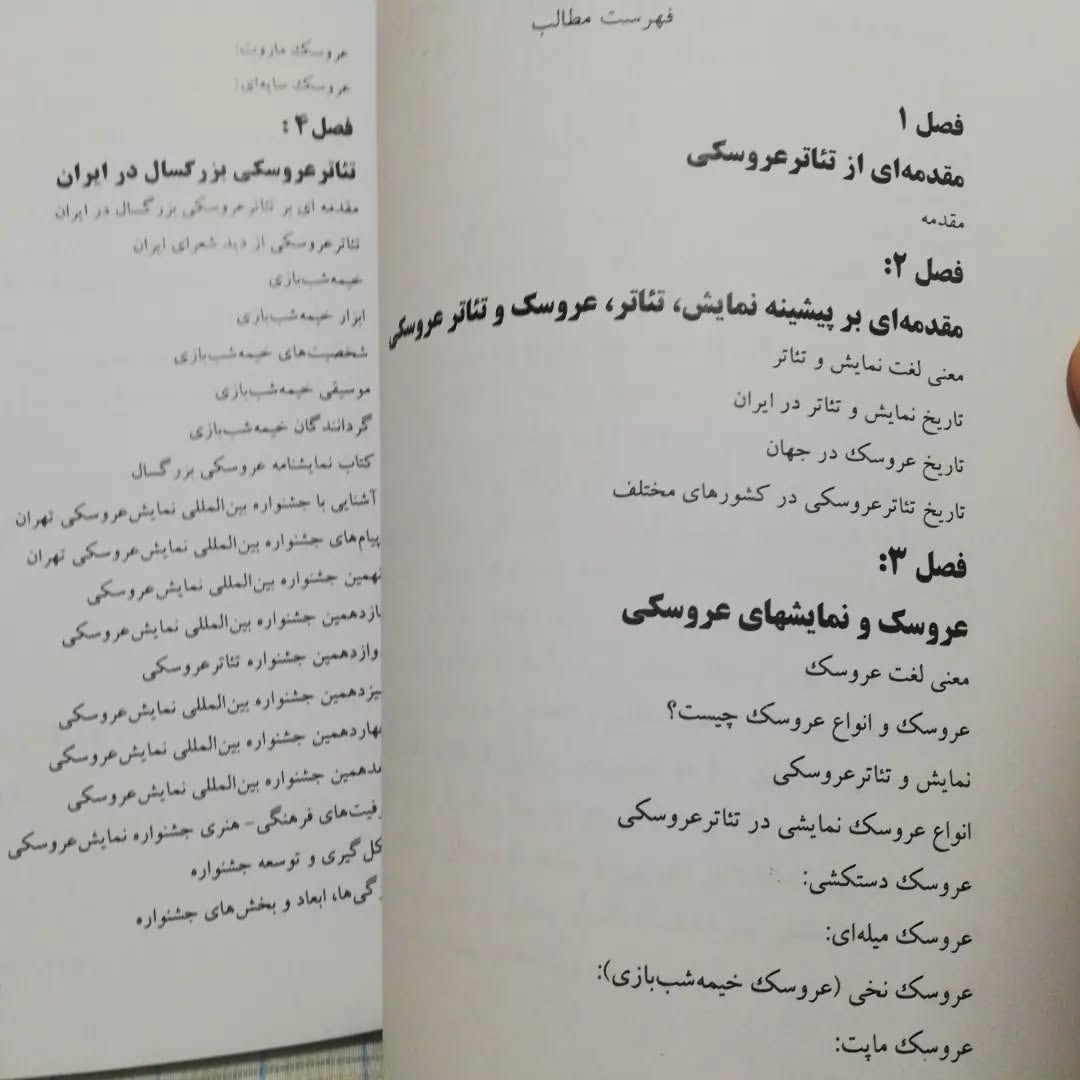 فهرست مطالب
فصل ۱
مقدمه‌ای از تئاترعروسکی
مقدمه
فصل ۲:
مقدمه‌ای بر پیشینه نمایش، تئاتر، عروسک و تئاتر عروسکی
معنی لغت نمایش و تئاتر
تاریخ نمایش و تئاتر در ایران
تاریخ عروسک در جهان
تاریخ تئاترعروسکی در کشورهای مختلف
فصل ۳:
عروسک و نمایشهای عروسکی
معنی لغت عروسک
عروسک و انواع عروسک چیست؟
نمایش و تئاترعروسکی
انواع عروسک نمایشی در تئاترعروسکی
عروسک دستکشی:
عروسک میله‌ای:
عروسک نخی (عروسک خیمه‌شب‌بازی):
عروسک ماپت:
عروسک ماروت:
عروسک سایه‌ای:
فصل ۴:
تئاترعروسکی بزرگسال در ایران
مقدمه ای بر تئاترعروسکی بزرگسال در ایران
تئاترعروسکی از دید شعرای ایران
خیمه‌شب‌بازی
ابزار خیمه‌شب‌بازی
شخصیت‌های خیمه‌شب‌بازی
موسیقی خیمه‌شب‌بازی
گردانندگان خیمه‌شب‌بازی
کتاب نمایشنامه عروسکی بزرگسال
آشنایی با جشنواره بین‌المللی نمایش‌عروسکی تهران
پیام‌های جشنواره بین‌المللی نمایش‌عروسکی تهران
نهمین جشنواره بین‌المللی نمایش‌عروسکی
جشنواره بین‌المللی نمایش‌عروسکی
جشنواره تئاترعروسکی
جشنواره بین‌المللی نمایش‌عروسکی
جشنواره بین‌المللی نمایش‌عروسکی
جشنواره بین‌المللی نمایش‌عروسکی
فرهنگی- هنری جشنواره نمایش‌عروسکی
گیری و توسعه جشنواره
ابعاد و بخش‌های جشنواره